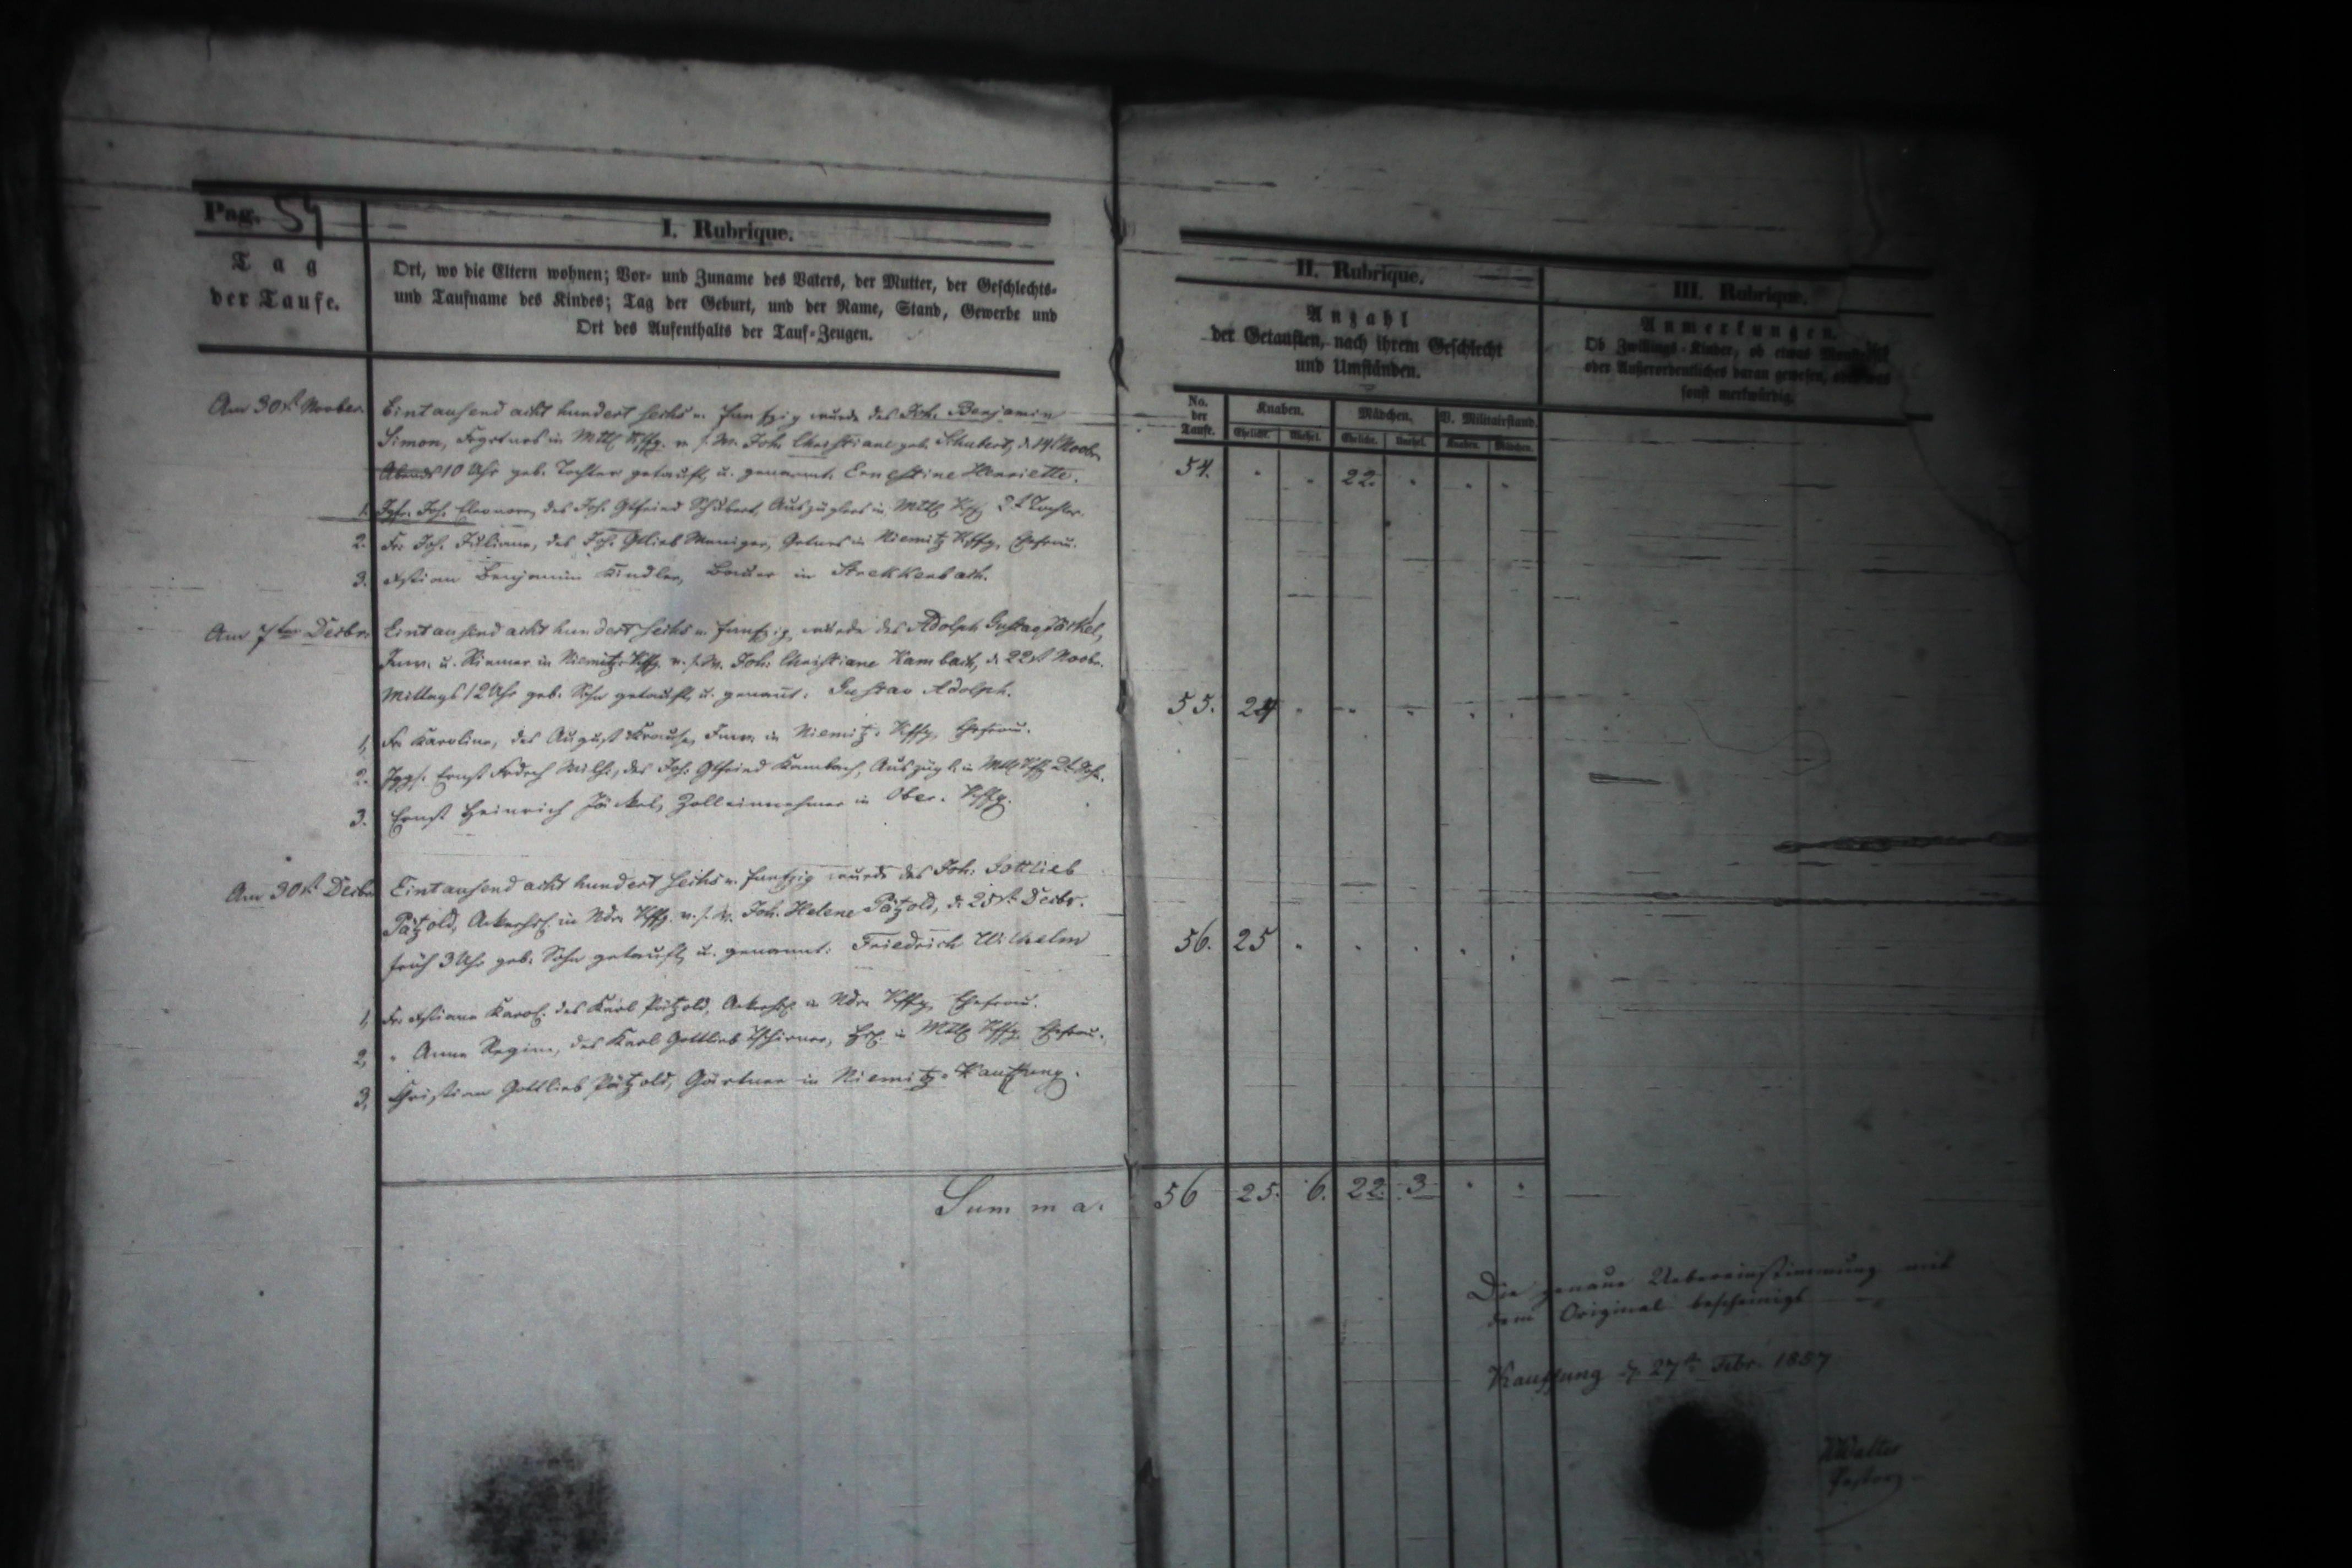 Pag. 54
I. Rubrique.
Tag
der Taufe.
Ort, wo die Eltern wohnen; Vor- und Zuname des Vaters, der Mutter, der Geschlechts-
und Taufname des Kindes; Tag der Geburt, und der Name, Stand, Gewerbe und
Ort des Aufenthalts der Tauf-Zeugen.
Am 30st Novber.
Eintausend acht hundert sechs u. funfzig wurde des Joh. Benjamin
Simon, in Mttl Kffg. u. s. W. Joh. Christiane geb. Schubert, d. 14t Novbr.
Abends 10 Uhr geb. Tochter getauft, u. genannt. Ernestine Henriette.
1. Igfr. Joh. Eleonore, des Joh. Gtfried Schubert, Auszüglers in Mttl Kffg 2t Tochter.
2. Fr. Joh. Juliane, des Joh. Gtlieb in Niemitz Kffg, Ehefrau.
3. Benjamin Kindler, Bauer in Strekkenbach.
Am 7ten Decbr.
Eintausend acht hundert sechs u. funfzig wurde des Adolph Gustav Jäckel,
Inw. u. Riemer in Niemitz-Kffg. u. s. W. Joh. Christiane Kambach, d. 22st Novbr.
Mittags 12 Uhr geb. Sohn getauft, u. genannt: Gustav Adolph.
1, Fr. Karoline, des August Krause, Inw. in Niemitz-Kffg, Ehefrau.
2. Iggs. Ernst Fridrch Wilh., des Joh. Gtfried Kambach, Auszügl. in Mttl Kffg 2t Sohn.
3. Ernst Heinrich Jäckel, Zolleinnehmer in Ober-Kffg.
Am 30st Decbr
Eintausend acht hundert sechs u. funfzig wurde des Joh. Gottlieb
Pätzold, Ackerhsl. in Ndr. Kffg. u. s. W. Joh. Helene Pätzold, d. 25st Decbr.
früh 3 Uhr geb. Sohn getauft, u. genannt: Friedrich Wilhelm
1, Fr. Karol. des Karl Pätzold, Ackerhsl. in Ndr. Kffg, Ehefrau.
2, " Anna Regina, des Karl Gottlieb Tschirner, Hsl. in Mttl Kffg Ehefrau.
3, Christian Gottlieb Pätzold, Gärtner in Niemitz-Kauffung.
Summa.
II. Rubrique.
Anzahl
der Getauften, nach ihrem Geschlecht
und Umständen.
No. der Taufe.
Knaben. Mädchen. V. Militairstand.
Ehelich. Unehel. Ehelich. Unehel. Knaben. Mädchen.
54. . . 22. . . .
55. 24 . . . . .
56. 25 . . . . .
56 25. 6. 22. 3 . .
III. Rubrique.
Anmerkungen.
Ob Zwillings-Kinder, ob etwas
oder Außerordentliches daran gewesen,
sonst merkwürdig.
Die genaue Uebereinstimmung mit
dem Original bescheinigt
Kauffung d. 27t Febr. 1857
Walter
Pastor